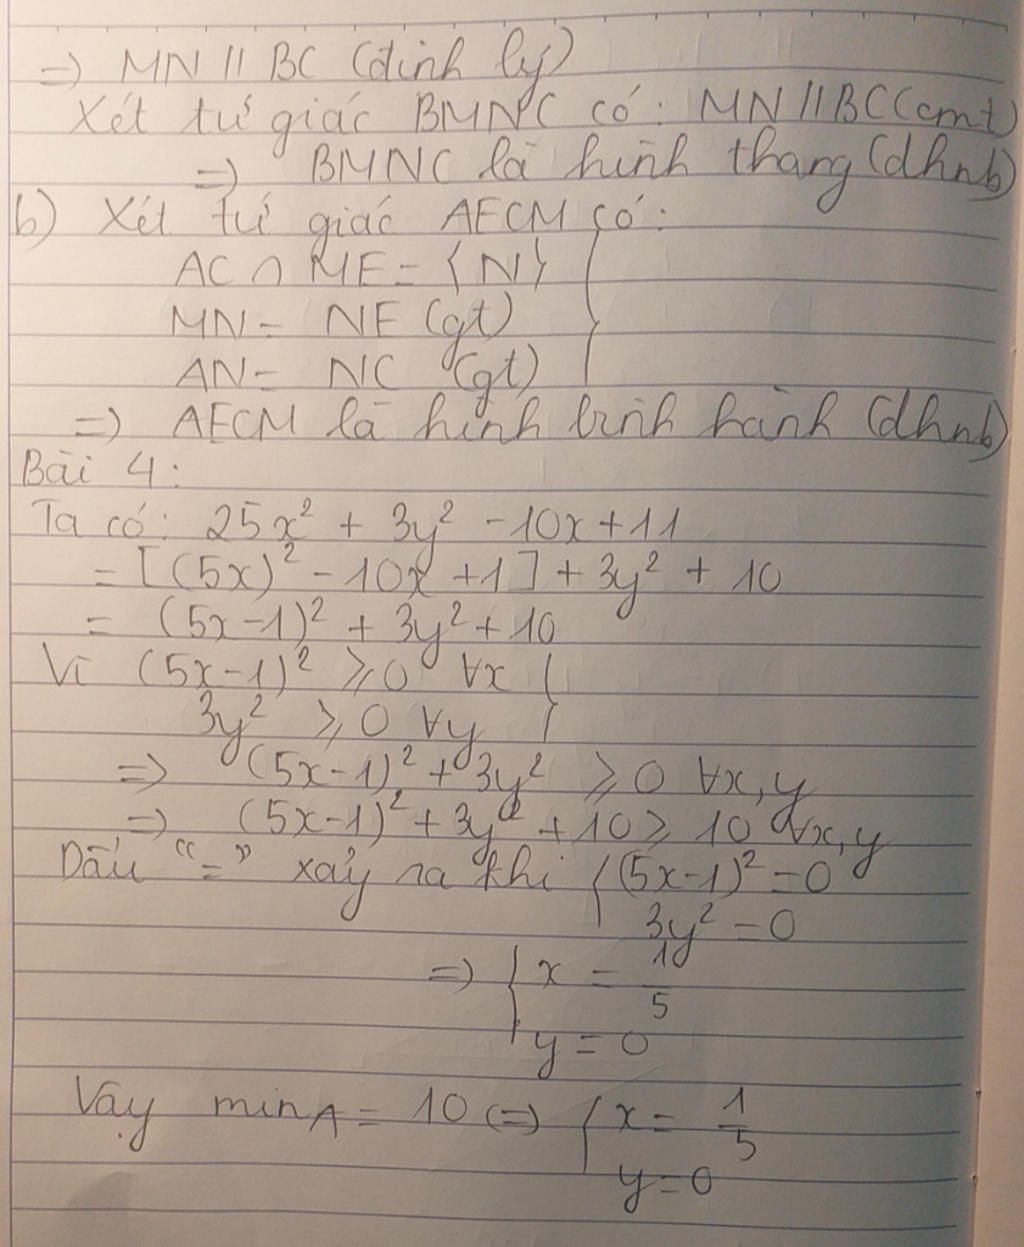 =) MN // BC (định lý)
Xét tứ giác BMNC có: MN // BC (cmt)
=) BMNC là hình thang (dhnb)
b) Xét tứ giác AECM có:
AC ∩ ME = {N}
MN = NE (gt)
AN = NC (gt)
=) AECM là hình bình hành (dhnb)
Bài 4:
Ta có: 25x² + 3y² - 10x + 11
= [(5x)² - 10x + 1] + 3y² + 10
= (5x - 1)² + 3y² + 10
Vì (5x - 1)² ⩾ 0 ∀x
3y² ⩾ 0 ∀y
=> (5x - 1)² + 3y² ⩾ 0 ∀x, y
=) (5x - 1)² + 3y² + 10 ⩾ 10 ∀x, y
Dấu "=" xảy ra khi { (5x - 1)² = 0
3y² = 0
=) { x = 1/5
y = 0
Vậy min A = 10 (=) { x = 1/5
y = 0